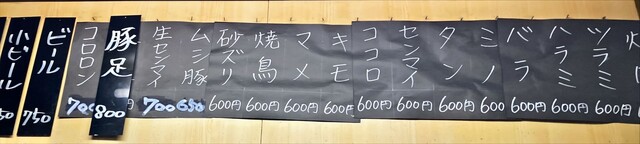 小ビール
50
ビール
750
コロロン
700
豚足
800
生センマイ
700
ムシ豚
650
砂ズリ
600円
焼鳥
600円
マメ
600円
キモ
600円
ココロ
600円
センマイ
600円
タン
600円
ミノ
600円
バラ
600円
ハラミ
600円
ツラミ
600円